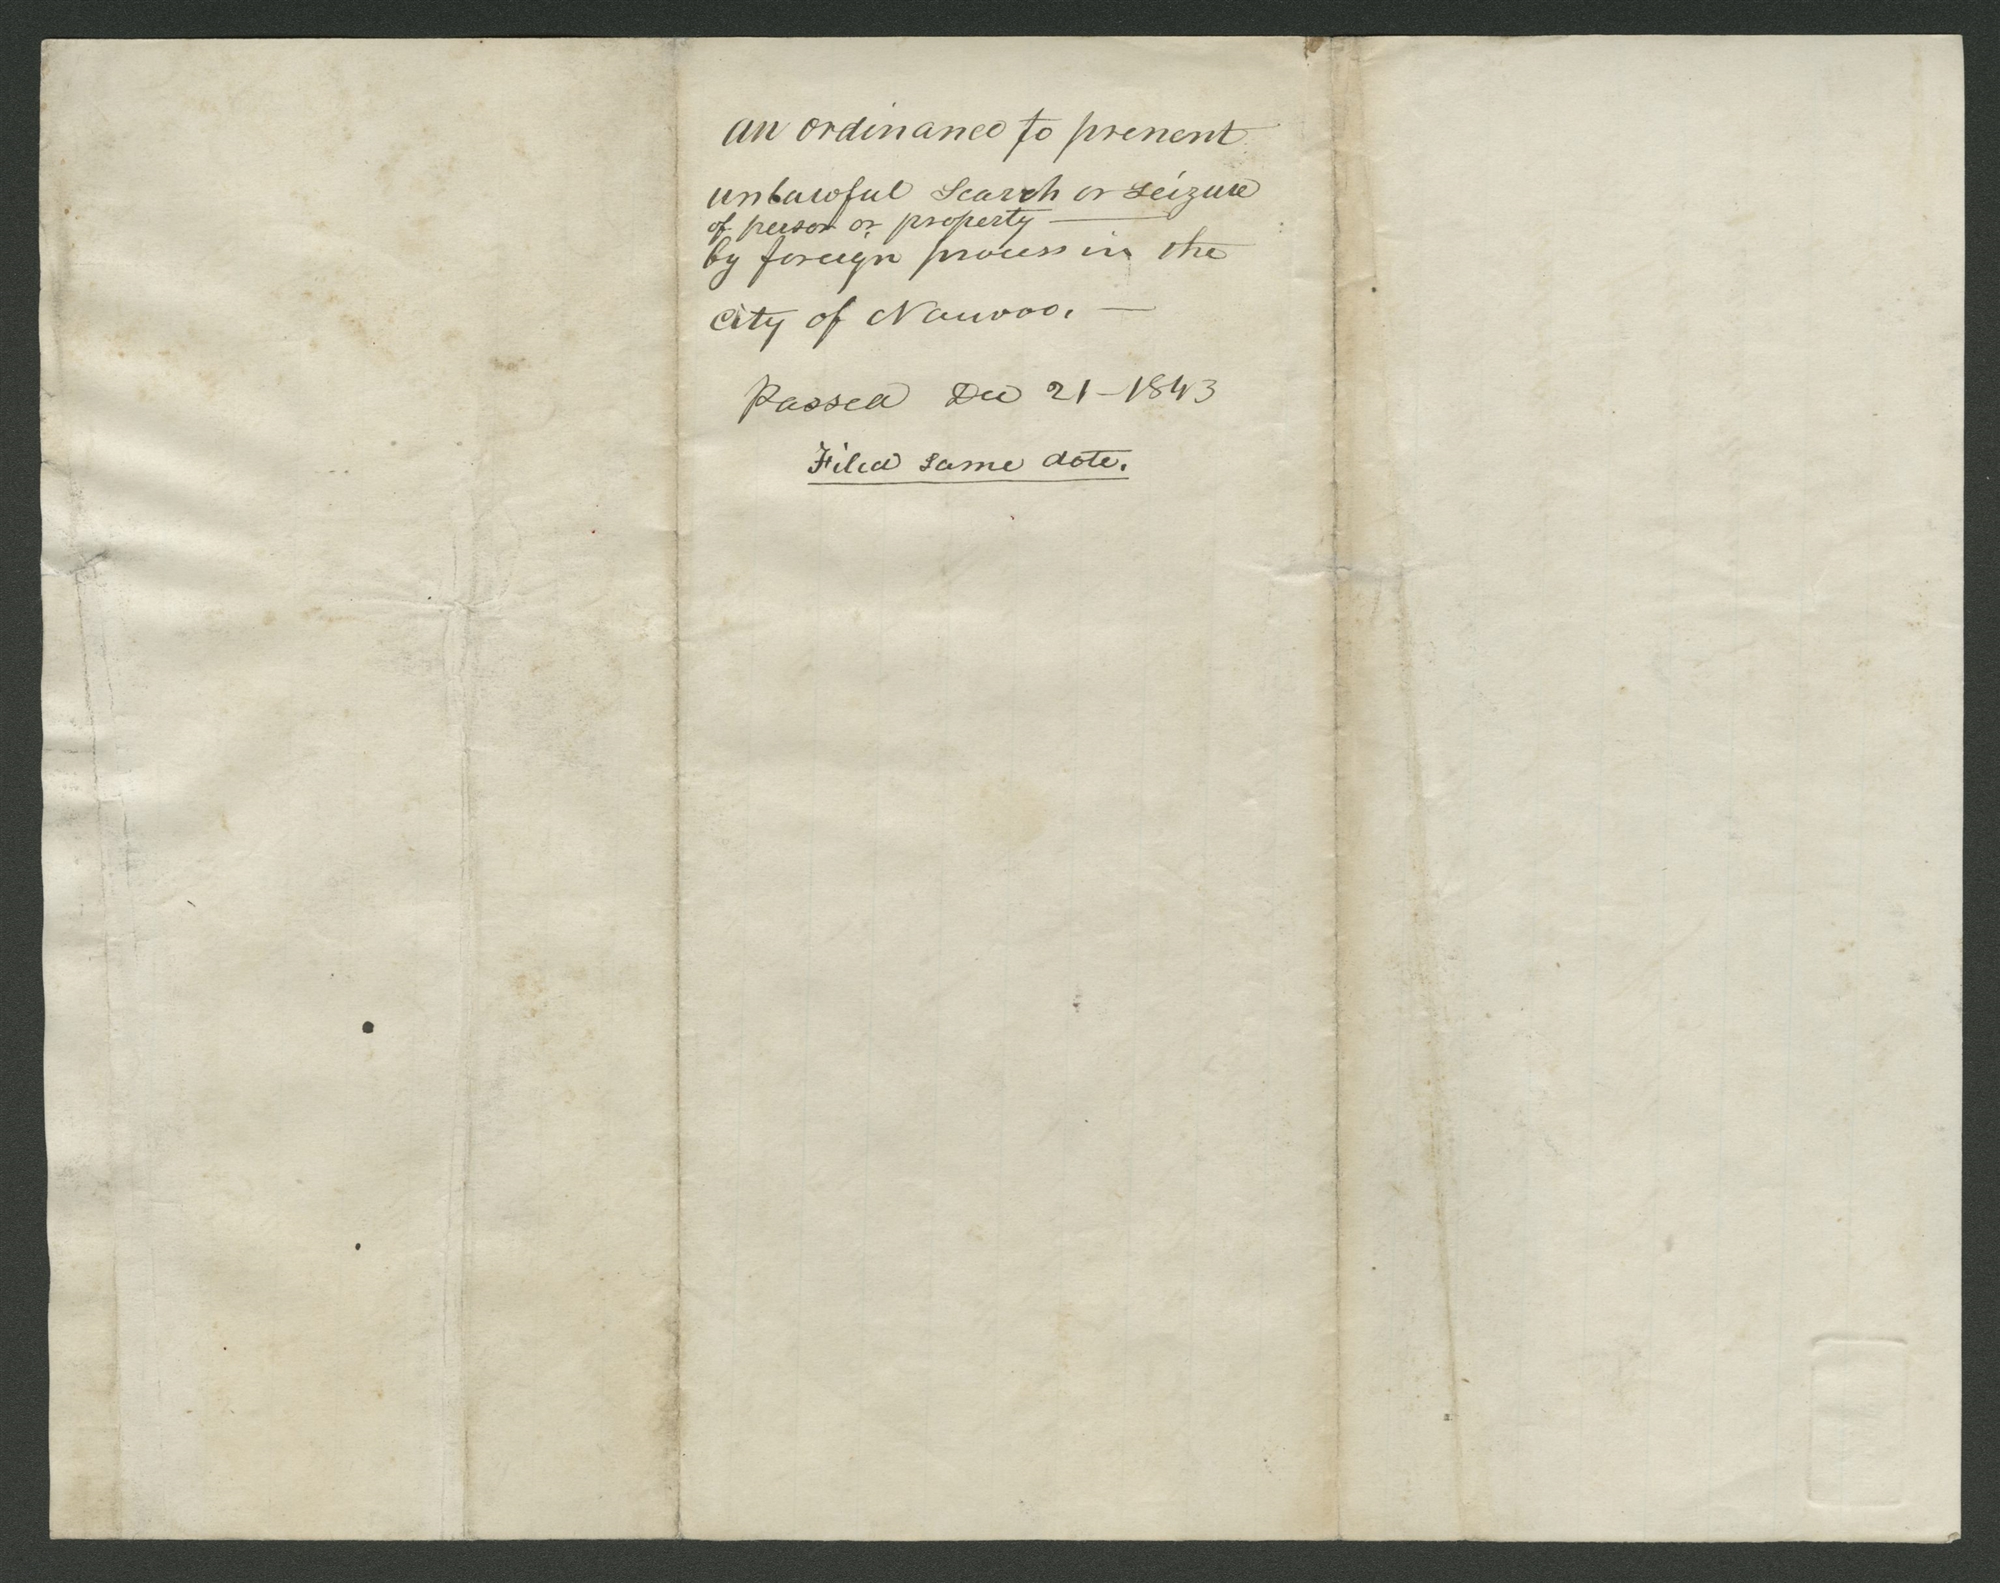 an ordinance to prevent
unlawful Search or seizure
of person or property —
by foreign process in the
City of Nauvoo. —
Passed Dec 21–1843
Filed same date.